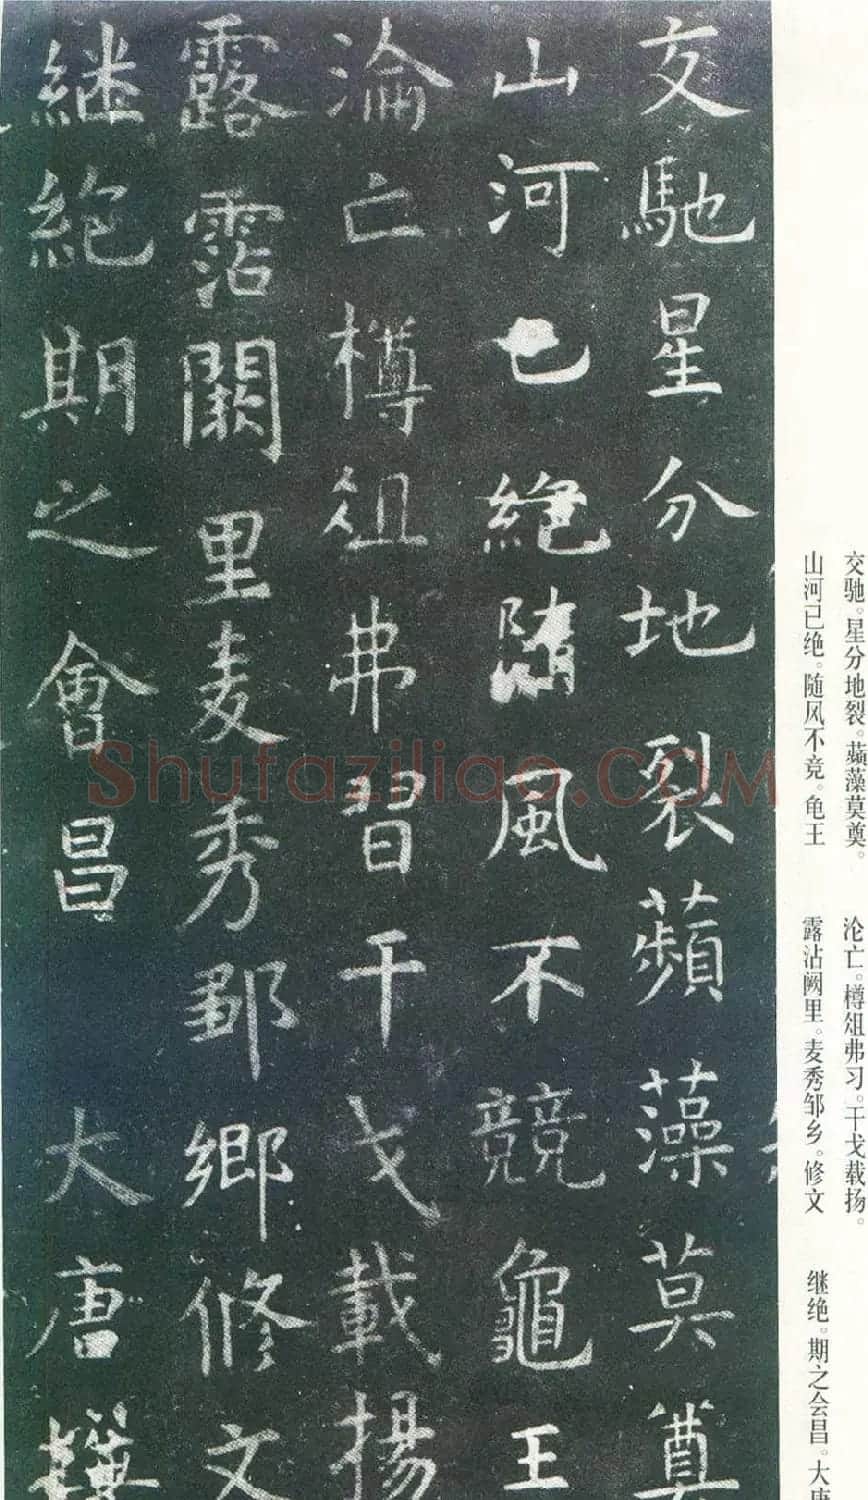 交馳星分地裂蘋藻莫奠
山河已絕隨風不競龜王
淪亡樽俎弗習干戈載揚
露霑闕里麦秀鄒鄉修文
継絕期之會昌 大唐撰
交驰。星分地裂。蘋藻莫奠。
山河已绝。随风不竞。龟王
沦亡。樽俎弗习。干戈载扬。
露沾阙里。麦秀邹乡。修文
继绝。期之会昌。大唐
Shufaziliao.COM